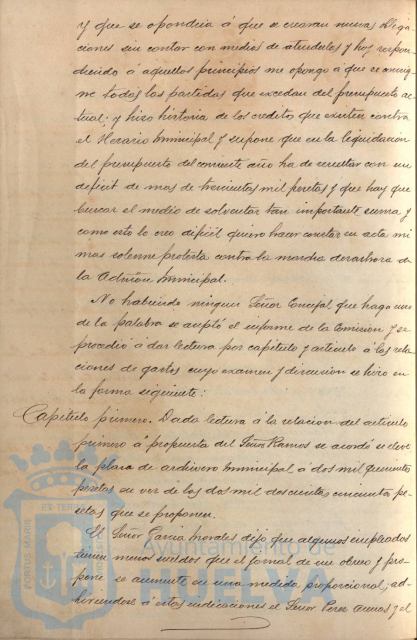 y que se opondria á que se crearan nuevas Obliga
ciones sin contar con medios de atenderlas y hoy respon
diendo á aquellos principios me opongo á que se consig
ne todas las partidas que excedan del presupuesto ac
tual; y hizo historia de los creditos que existen contra
el Herario municipal y supone que en la liquidacion
del presupuesto del corriente año ha de resultar con un
deficit de mas de trescientas mil pesetas y que hay que
buscar el medio de solventar tan importante suma y
como esto lo creo dificil quiero hacer constar en acta mi
mas solemne protesta contra la marcha desastrosa de
la Admón municipal.
No habiendo ningun Señor Concejal que haga uso
de la palabra se aceptó el informe de la Comision y se
procedio á dar lectura por capitulo y articulo á las rela
ciones de gastos cuyo examen y discusion se hizo en
la forma siguiente:
Capitulo primero. Dada lectura á la relacion del articulo
primero á propuesta del Señor Ramos se acordó se eleve
la plaza de archivero municipal á dos mil quinientas
pesetas en vez de las dos mil doscientas cincuenta pe
setas que se proponen.
El Señor Garcia Morales dijo que algunos empleados
tienen menos sueldos que el jornal de un obrero y pro
pone se aumente en una medida proporcional; ad
hiriendose á estas indicaciones el Señor Perez
y el
PORTUS MARIS
ET TERRAE
Ayuntamiento de
HUELVA